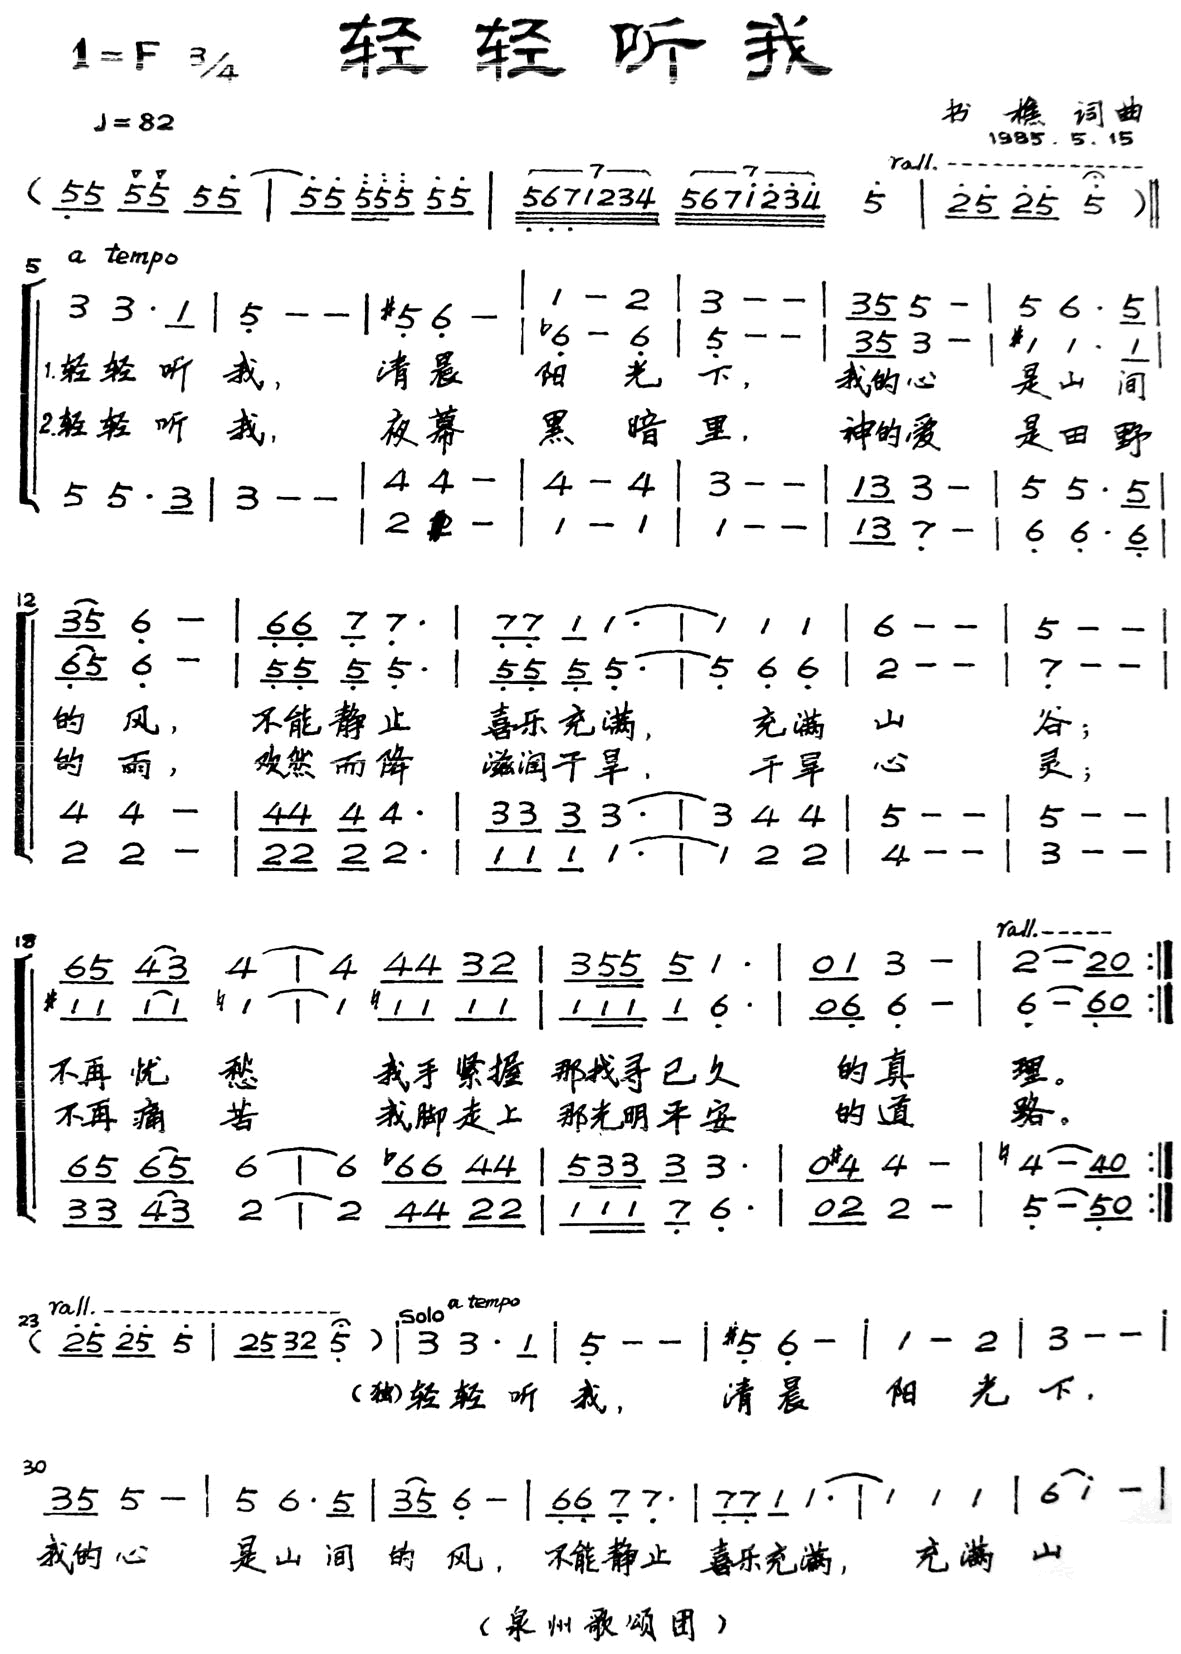 1=F 3/4 轻轻听我
♩=82
书 樵 词曲
1985.5.15
rall.
( 55 55 55 | 55 555 55 | 5671234 5671234 5 | 25 25 5 )‖
5 a tempo
3 3·1 | 5 - - | #5 6 - | 1 - 2 | 3 - - | 35 5 - | 5 6·5 |
| b6 - 6 | 5 - - | 35 3 - | #1 1·1 |
1.轻轻听我, 清晨阳光下, 我的心是山间
2.轻轻听我, 夜幕黑暗里, 神的爱是田野
5 5·3 | 3 - - | 4 4 - | 4 - 4 | 3 - - | 13 3 - | 5 5·5 |
| 2 2 - | 1 - 1 | 1 - - | 13 7 - | 6 6·6 |
12
35 6 - | 66 7 7· | 77 1 1· | 1 1 1 | 6 - - | 5 - - |
65 6 - | 55 5 5· | 55 5 5· | 5 6 6 | 2 - - | 7 - - |
的风, 不能静止 喜乐充满, 充满山谷;
的雨, 欢然而降 滋润干旱, 干旱心灵;
4 4 - | 44 4 4· | 33 3 3· | 3 4 4 | 5 - - | 5 - - |
2 2 - | 22 2 2· | 11 1 1· | 1 2 2 | 4 - - | 3 - - |
18 rall.
65 43 4 | 4 44 32 | 355 5 1· | 01 3 - | 2 - 20 :‖
#11 11 ♮1 | 1 ♮11 11 | 111 1 6· | 06 6 - | 6 - 60 :‖
不再忧愁 我手紧握 那找寻已久 的真理。
不再痛苦 我脚走上 那光明平安 的道路。
65 65 6 | 6 b66 44 | 533 3 3· | 0#4 4 - | ♮4 - 40 :‖
33 43 2 | 2 44 22 | 111 7 6· | 02 2 - | 5 - 50 :‖
rall. Solo a tempo
23 ( 25 25 5 | 2532 5 ) | 3 3·1 | 5 - - | #5 6 - | 1 - 2 | 3 - - |
(独)轻轻听我, 清晨阳光下,
30
35 5 - | 5 6·5 | 35 6 - | 66 7 7· | 77 1 1· | 1 1 1 | 6 1 - |
我的心 是山间的风, 不能静止 喜乐充满, 充满山
(泉州歌颂团)